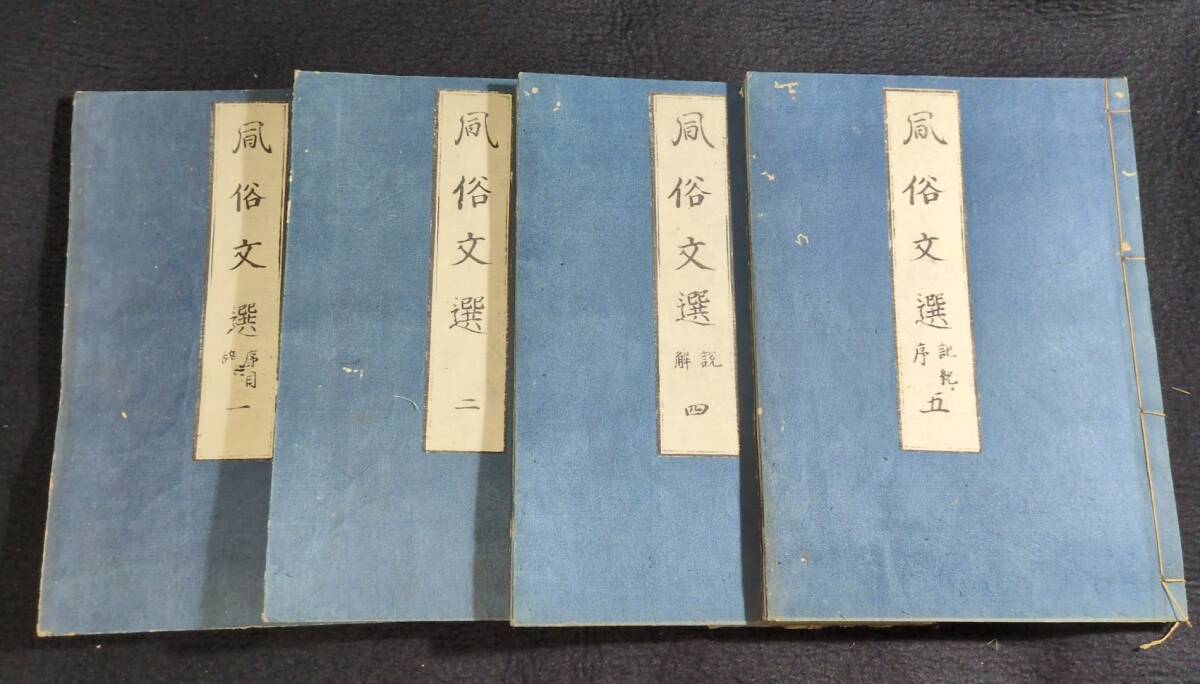 風俗文選
序目
一
風俗文選
二
風俗文選
説
解
四
風俗文選
記
紀
序
五